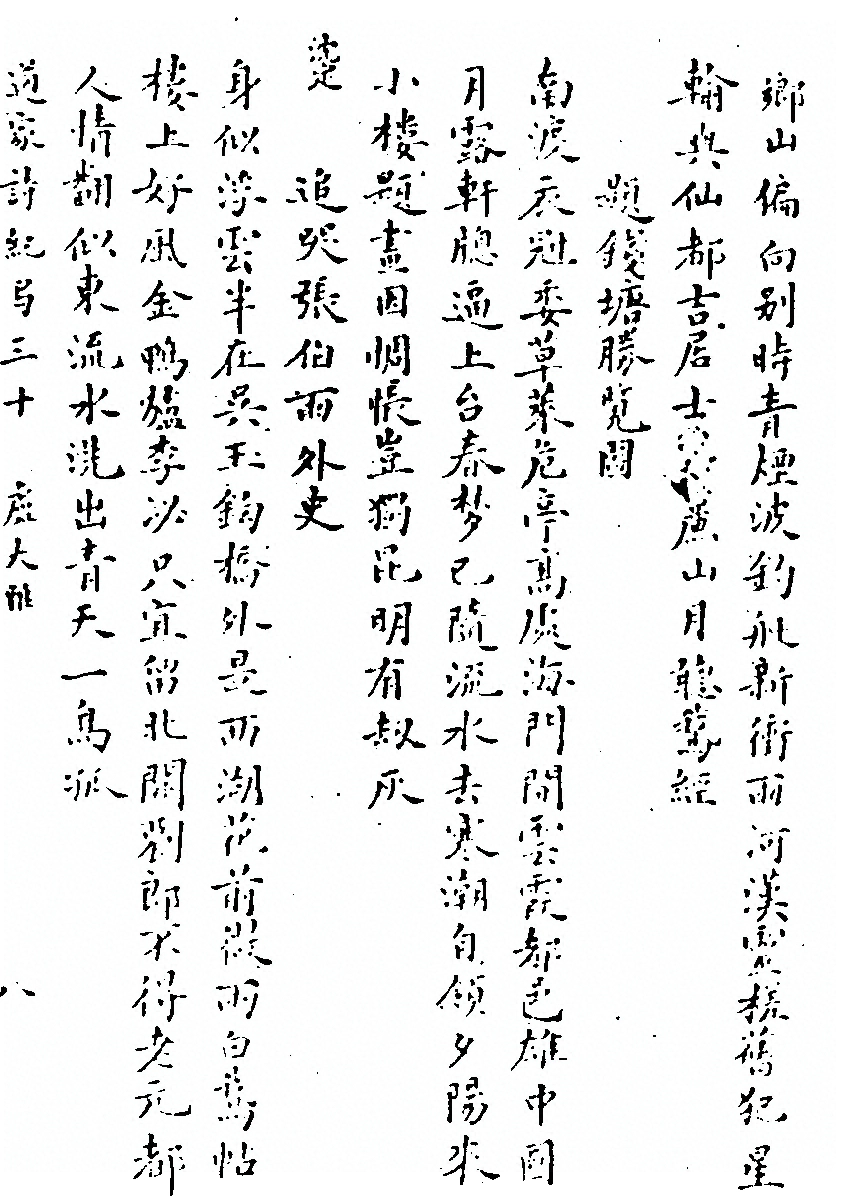 鄉山偏向别時青煙波釣艇新衝雨河漢靈槎舊犯星
輪與仙都吉居士廬山月聽鵞經
題錢塘勝覽圖
南渡衣冠委草萊危亭髙處海門開雲霞都邑雄中國
月露軒牕逼上台春梦已隨流水去寒潮自領夕陽來
小樓題畫因惆悵豈獨昆明有劫灰
追哭張伯雨外史
身似浮雲半在吳玉鈎橋外是西湖花前微雨白鵞帖
楼上好風金鴨爐李泌只宜留北闕劉郎不得老元都
人情翻似東流水洗出青天一鳥孤
道家詩紀卷三十 虞大雅
八